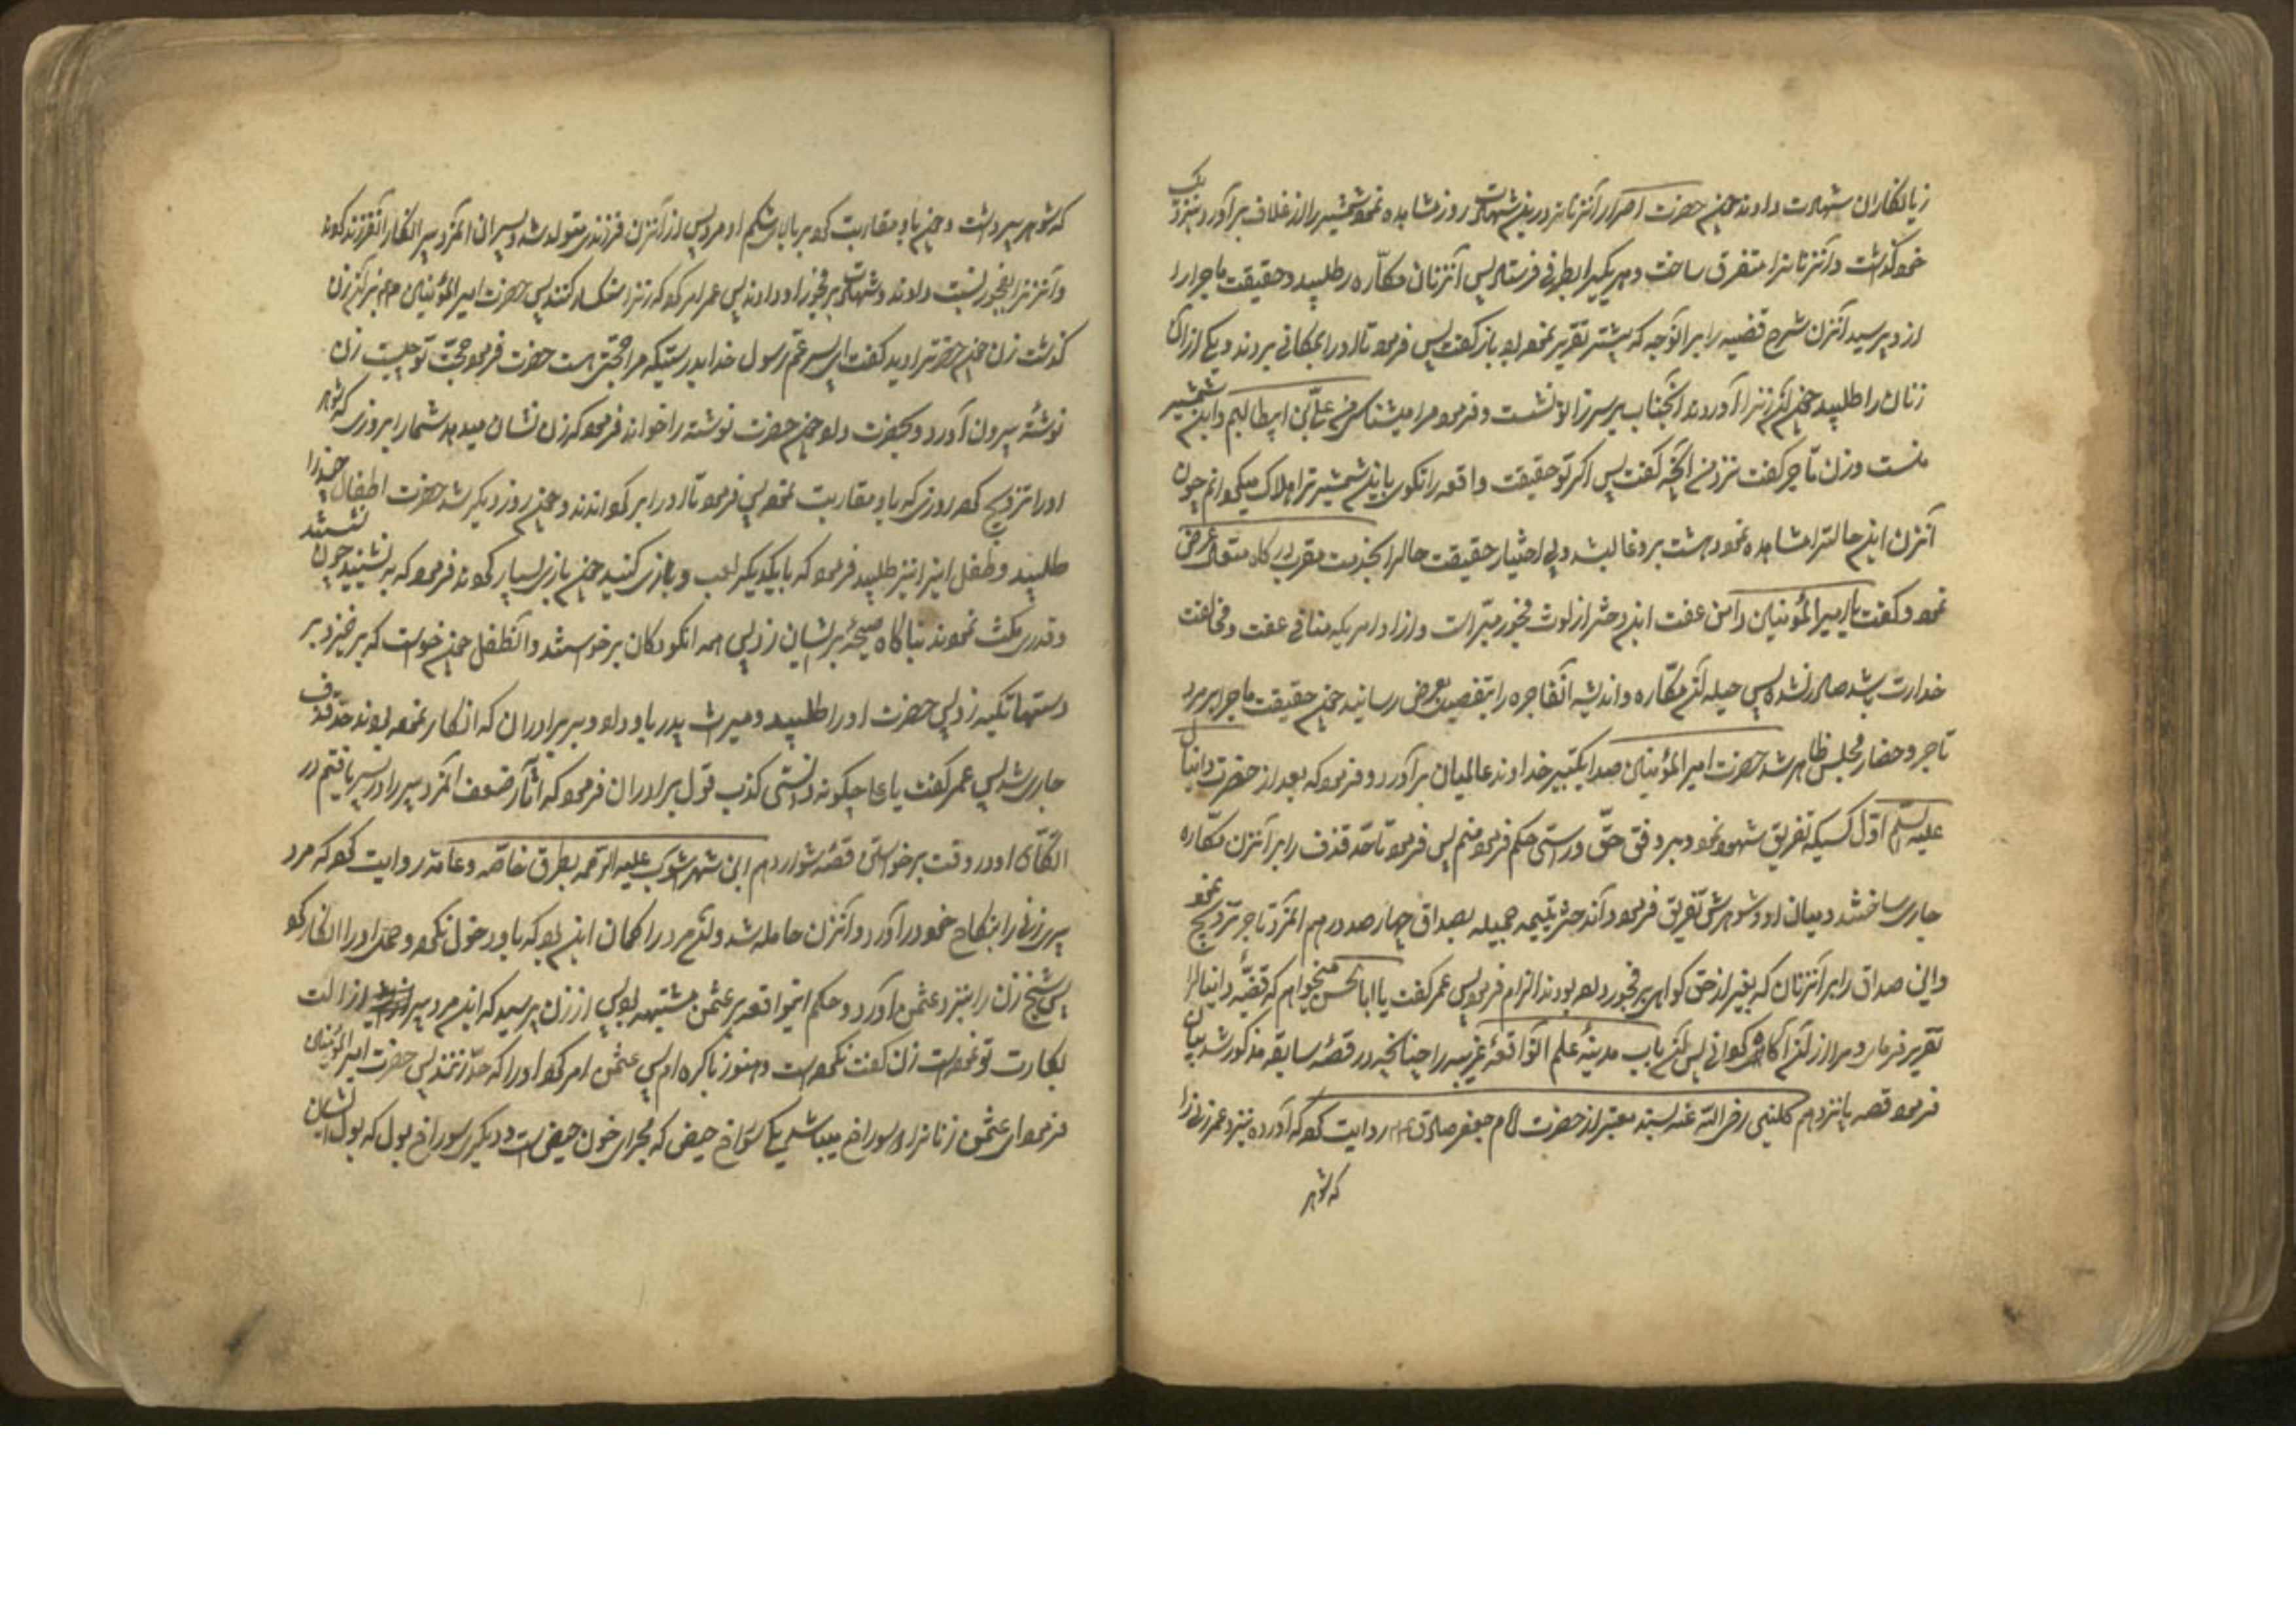 زیانکاران شهادت دادند چون حضرت اصرار آنزنانرا درین شهادت روز مشاهده نمود شمشیر را از غلاف برآورد و نزدیک
خود گذاشت و آنزنانرا متفرق ساخت و هر یکیرا بطرفی فرستاد پس آنزنان مکّاره را طلبید و حقیقت ماجرا را
از و پرسید آنزن شرح قضیه را بر آنوجه که پیشتر تقریر نموده بود باز گفت پس فرمود تا او را بمکانی بردند و یکی از آن
زنان را طلبید چون آنزنرا آوردند آنجناب بر سر زانو نشست و فرمود مرا میشناسی منم علی بن ابیطالبم و این شمشیر
منست و زن تاجر گفت نزد من آنچه گفت پس اگر تو حقیقت واقعه را نگوی باین شمشیر ترا هلاک میگردانم چون
آنزن این حالترا مشاهده نمود دهشت برو غالب شد و بی اختیار حقیقت حالرا بخدمت مقرب درگاه متعال عرض
نمود و گفت یا امیر المؤمنین دامن عفت این دختر از لوث فجور مبّراست و از او امریکه منافی عفت و مخالفت
خدارت باشد صادر نشده پس حیله آن مکّاره و اندیشه آنفاجره را بتفصیل بعرض رسانید چون حقیقت ماجرا بر مرد
تاجر و حضار مجلس ظاهر شد حضرت امیر المؤمنین صدا بتکبیر خداوند عالمیان برآورد و فرمود که بعد از حضرت دانیال
علیه السلم اوّل کسیکه تفریق شهود نمود و بر وفق حقّ و راستی حکم فرمود منم پس فرمود تا حد قذف را بر آنزن مکّاره
جاری ساختند و میان او و شوهرش تفریق فرمود و آندختر یتیمه جمیله بصداق چهارصد درهم بآنمرد تاجر تزویج نمود
و این صداق را بر آنزنان که بغیر از حق گواهی بر فجور داده بودند الزام فرمود پس عمر گفت یا ابا الحسن میخواهم که قضیّه دانیالرا
تقریر فرمای و مرا از آن آگاه گردانی پس آن باب مدینۀ علم آنواقعۀ غریبه را چنانچه در قصّۀ سابقه مذکور شد بیان
فرمود قصه پانزدهم کلینی رضی الله عنه بسند معتبر از حضرت امام جعفر صادق ع م روایت کرد که آوردند بنزد عمر زنی را
که شوهر
که شوهر پیر داشت و چون باو مقاربت کرد بر بالای شکم او مرد پس از آنزن فرزندی متولد شد و پسران آنمرد پیر انکار آنفرزند کردند
و آنزنرا بفجور نسبت دادند و شهادت بر فجور او دادند پس عمر امر کرد که زنرا سنگسار کنند پس حضرت امیر المؤمنین ع م بر آنزن
گذشت زن چون حضرترا دید گفت ای پسر عمّ رسول خدا بدرستیکه مرا حجّتی هست حضرت فرمود حجّت تو چیست زن
نوشتۀ بیرون آورد و بحضرت داد چون حضرت نوشته را خواند فرمود که زن نشان میدهد شمارا بروزی که شوهر
او را تزویج کرد و روزی که باو مقاربت نمود پس فرمود تا او را برگردانند و چون روز دیگر شد حضرت اطفال چند را
طلبید و طفل اینرا نیز طلبید فرمود که با یکدیگر لعب و بازی کنید چون بازی بسیار کردند فرمود که بنشینید چون نشستند
و قدری مکث نمودند بناگاه صیحۀ بر ایشان زد پس همه آنکودکان برخواستند و آنطفل چون خواست که برخیزد بر
دستها تکیه زد پس حضرت او را طلبید و میراث پدر باو داد و بر برادران که انکار نموده بودند حدّ قذف
جاری شد پس عمر گفت یا علی چگونه دانستی کذب قول برادران فرمود که آثار ضعف آنمرد پیر را در پسر یافتم در
اتّکای او در وقت برخواستن قصّه شانزدهم ابن شهرآشوب علیه الرحمه بطرق خاصّه و عامّه روایت کرد که مرد
پیر زنی را بنکاح خود درآورد و آنزن حامله شد و آن مرد را گمان این بود که باو دخول نکرده و حمل او را انکار کرد
پس شیخ زن را بنزد عثمن آورد و حکم اینواقعه بر عثمن مشتبه بود پس از زن پرسید که این مرد پیر ازالت
بکارت تو نموده است زن گفت نکرده است و هنوز باکره ام پس عثمن امر کرد او را که حدّ زنند پس حضرت امیر المؤمنین
فرمود ای عثمن زنانرا دو سوراخ میباشد یکی سوراخ حیض که مجرای خون حیض است و دیگری سوراخ بول که بول ایشان